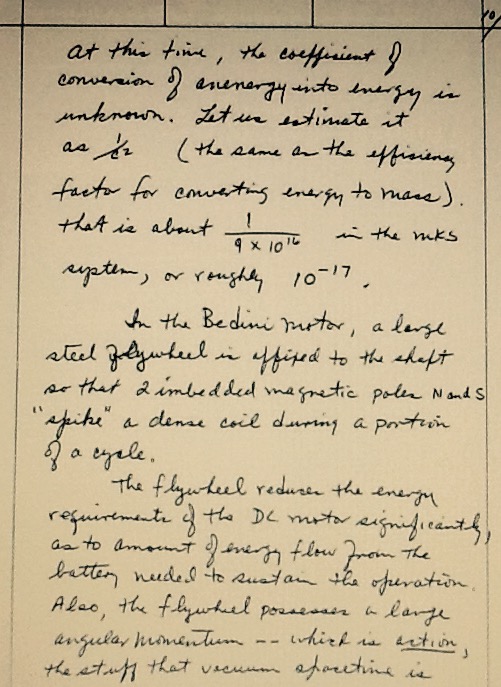 10/
At this time, the coeffisient of
conversion of anenergy into energy is
unknown. Let us estimate it
as 1/c2 (the same as the effisiency
factor for converting energy to mass).
That is about 1/9 x 10^16 in the mks
system, or roughly 10^-17.
In the Bedini motor, a large
steel flywheel is affixed to the shaft
so that 2 imbedded magnetic poles N and S
"spike" a dense coil during a portion
of a cycle.
The flywheel reduces the energy
requirements of the DC motor significantly,
as to amount of energy flow from the
battery needed to sustain the operation.
Also, the flywheel possesses a large
angular momentum -- which is action,
the stuff that vacuum spacetime is